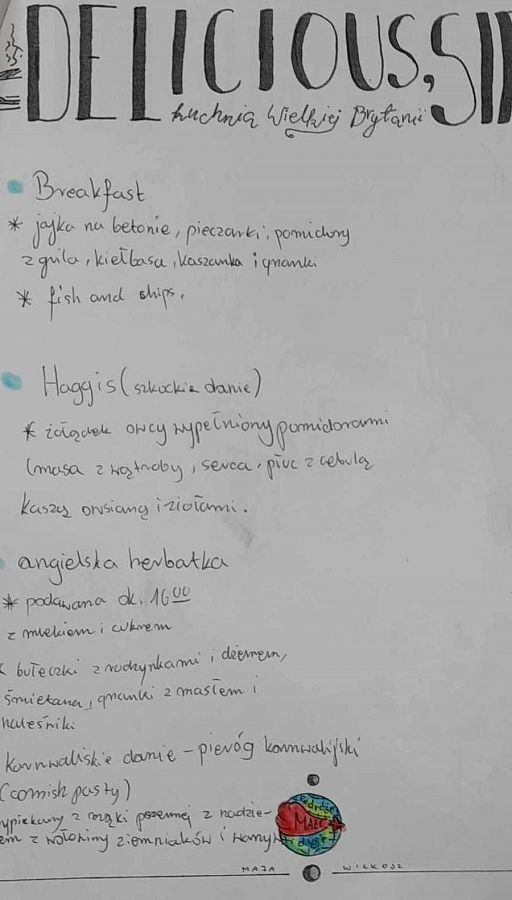 DELICIOUS, SI
kuchnią Wielkiej Brytanii
Breakfast
* jajka na betonie, pieczarki, pomidory
z grila, kiełbasa, kaszanka i grnanki
* fish and ships.
Haggis (szkockie danie)
* żołądek owcy wypełniony pomidorami
(masa z wątroby, serca, płuc z cebulą
kaszą owsianą i ziołami.
angielska herbatka
* podawana ok. 16 00
z mlekiem i cukrem
bułeczki z rodzynkami i dżemem,
śmietana, grnanki z masłem i
naleśniki
kornwaliskie danie - pieróg kornwalijski
(cornish pasty)
wypiekany z mąki pszennej z nadzie-
em z wołowiny ziemniaków i warzyw
MAŁE
MAJA WICKOSZ